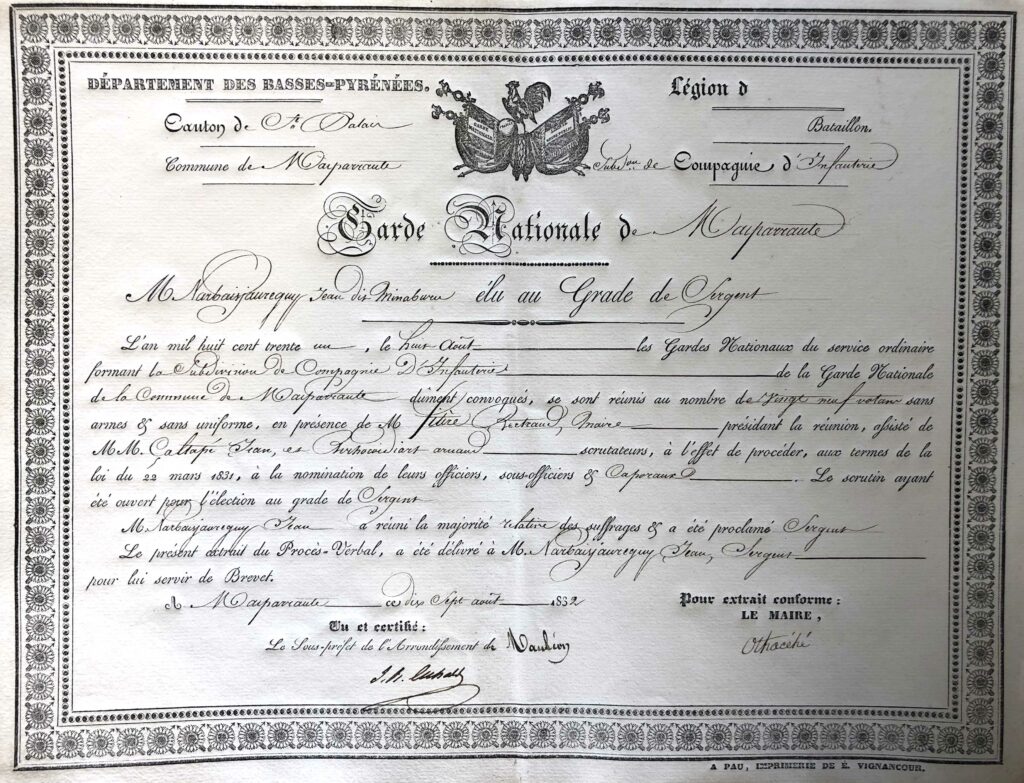 DÉPARTEMENT DES BASSES-PYRÉNÉES.
Légion d
Canton de St. Palais
Bataillon.
Commune de Masparraute
Subdon. de Compagnie d'Infanterie
Garde Nationale de Masparraute
M Narbaïsjaureguy Jean dit Minaburu élu au Grade de Sergent
L'an mil huit cent trente un, le huit Août les Gardes Nationaux du service ordinaire
formant la Subdivision de Compagnie d'Infanterie de la Garde Nationale
de la Commune de Masparraute dûment convoqués, se sont réunis au nombre de vingt neuf votans sans
armes & sans uniforme, en présence de M Bertrand, Maire présidant la réunion, assisté de
MM. Jean, et arnaud scrutateurs, à l'effet de procéder, aux termes de la
loi du 22 mars 1831, à la nomination de leurs officiers, sous-officiers & Caporaux. Le scrutin ayant
été ouvert pour l'élection au grade de Sergent
M. Narbaïsjaureguy Jean a réuni la majorité relative des suffrages & a été proclamé Sergent
Le présent extrait du Procès-Verbal, a été délivré à M. Narbaïsjaureguy Jean, Sergent
pour lui servir de Brevet.
A Masparraute ce dix Sept août 1832
Pour extrait conforme :
LE MAIRE,
Vu et certifié :
Le Sous-préfet de l'Arrondissement de Mauléon
A PAU, IMPRIMERIE DE É. VIGNANCOUR.